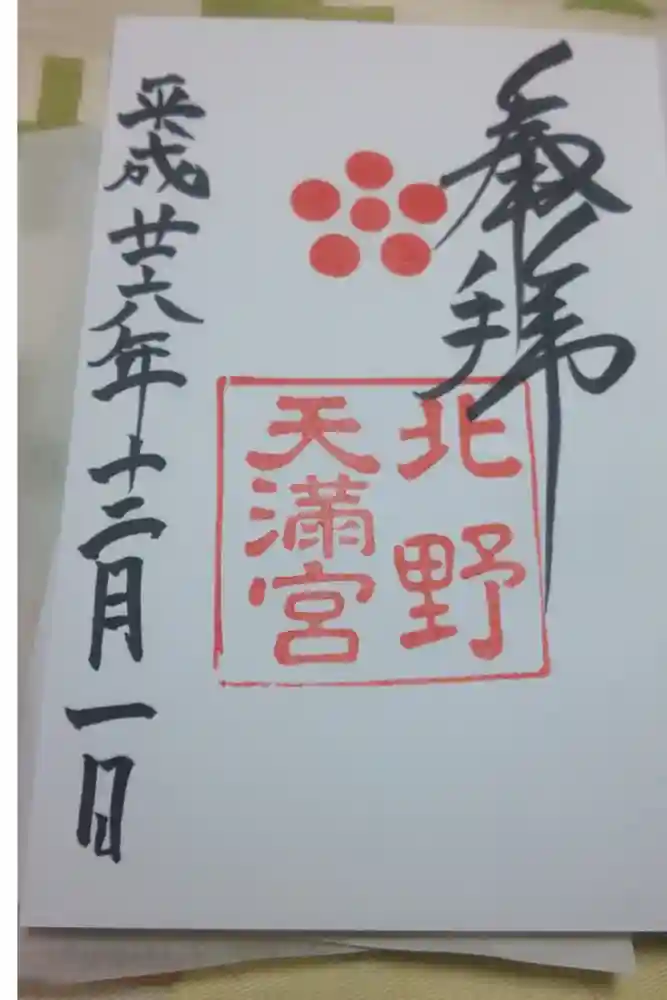 奉拝
北野
天満宮
平成廿六年十二月一日